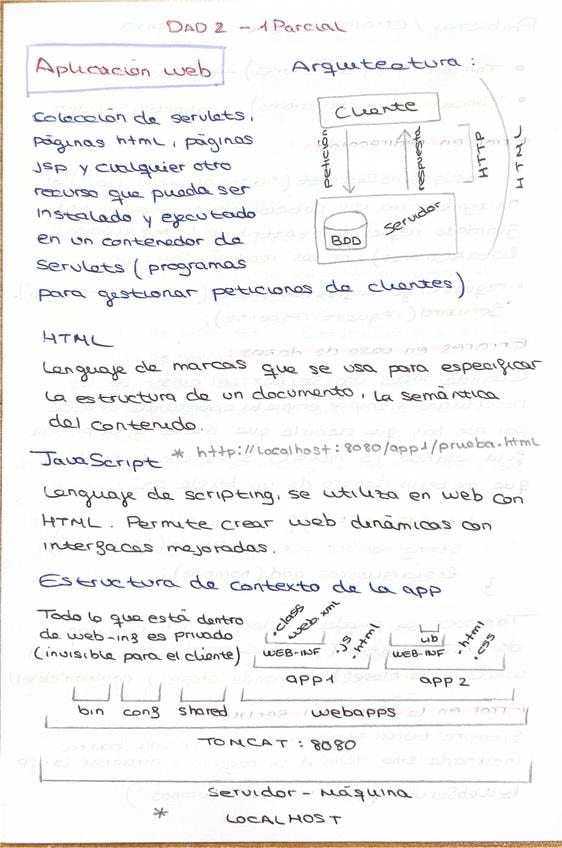 DAD 2 - 1 Parcial
Aplicación web
Arquitectura:
Colección de servlets,
páginas html, páginas
jsp y cualquier otro
recurso que pueda ser
instalado y ejecutado
en un contenedor de
servlets (programas
para gestionar peticiones de clientes)
Cliente
petición
respuesta
HTTP
HTML
BDD
Servidor
HTML
Lenguaje de marcas que se usa para especificar
la estructura de un documento, la semántica
del contenido.
JavaScript * http://localhost:8080/app1/prueba.html
Lenguaje de scripting, se utiliza en web con
HTML. Permite crear web dinámicas con
interfaces mejoradas.
Estructura de contexto de la app
Todo lo que está dentro
de web-inf es privado
(invisible para el cliente)
.class
web.xml
.js
.html
lib
.html
.css
WEB-INF
WEB-INF
app1
app2
bin conf shared webapps
TOMCAT: 8080
Servidor - Máquina
* LOCALHOST